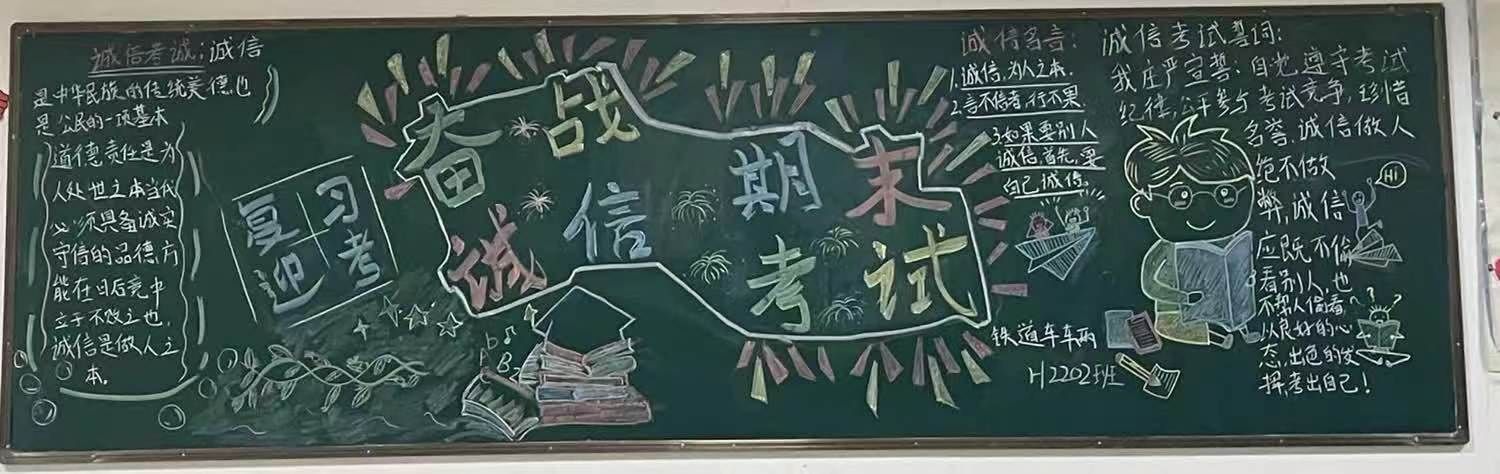 诚信考诚；诚信
是中华民族的传统美德，也
是公民的一项基本
道德责任是为
人处世之本当代
必须具备诚实
守信的品德，方
能在日后竞中
立于不败之地，
诚信是做人之
本。
复习
迎考
奋战
期末
诚信
考试
诚信名言：
1.诚信，为人之本.
2.言不信者，行不果.
3.如果要别人
诚信，首先，要
自己诚信。
铁道车车两
H2202班
诚信考试誓词：
我庄严宣誓：自觉遵守考试
纪律，公平参与考试竞争，珍惜
名誉，诚信做人
绝不做
弊，诚信
应 不偷
看别人，也
不帮人偷看
以良好的心
态，出色的发
挥，考出自己！
Hi